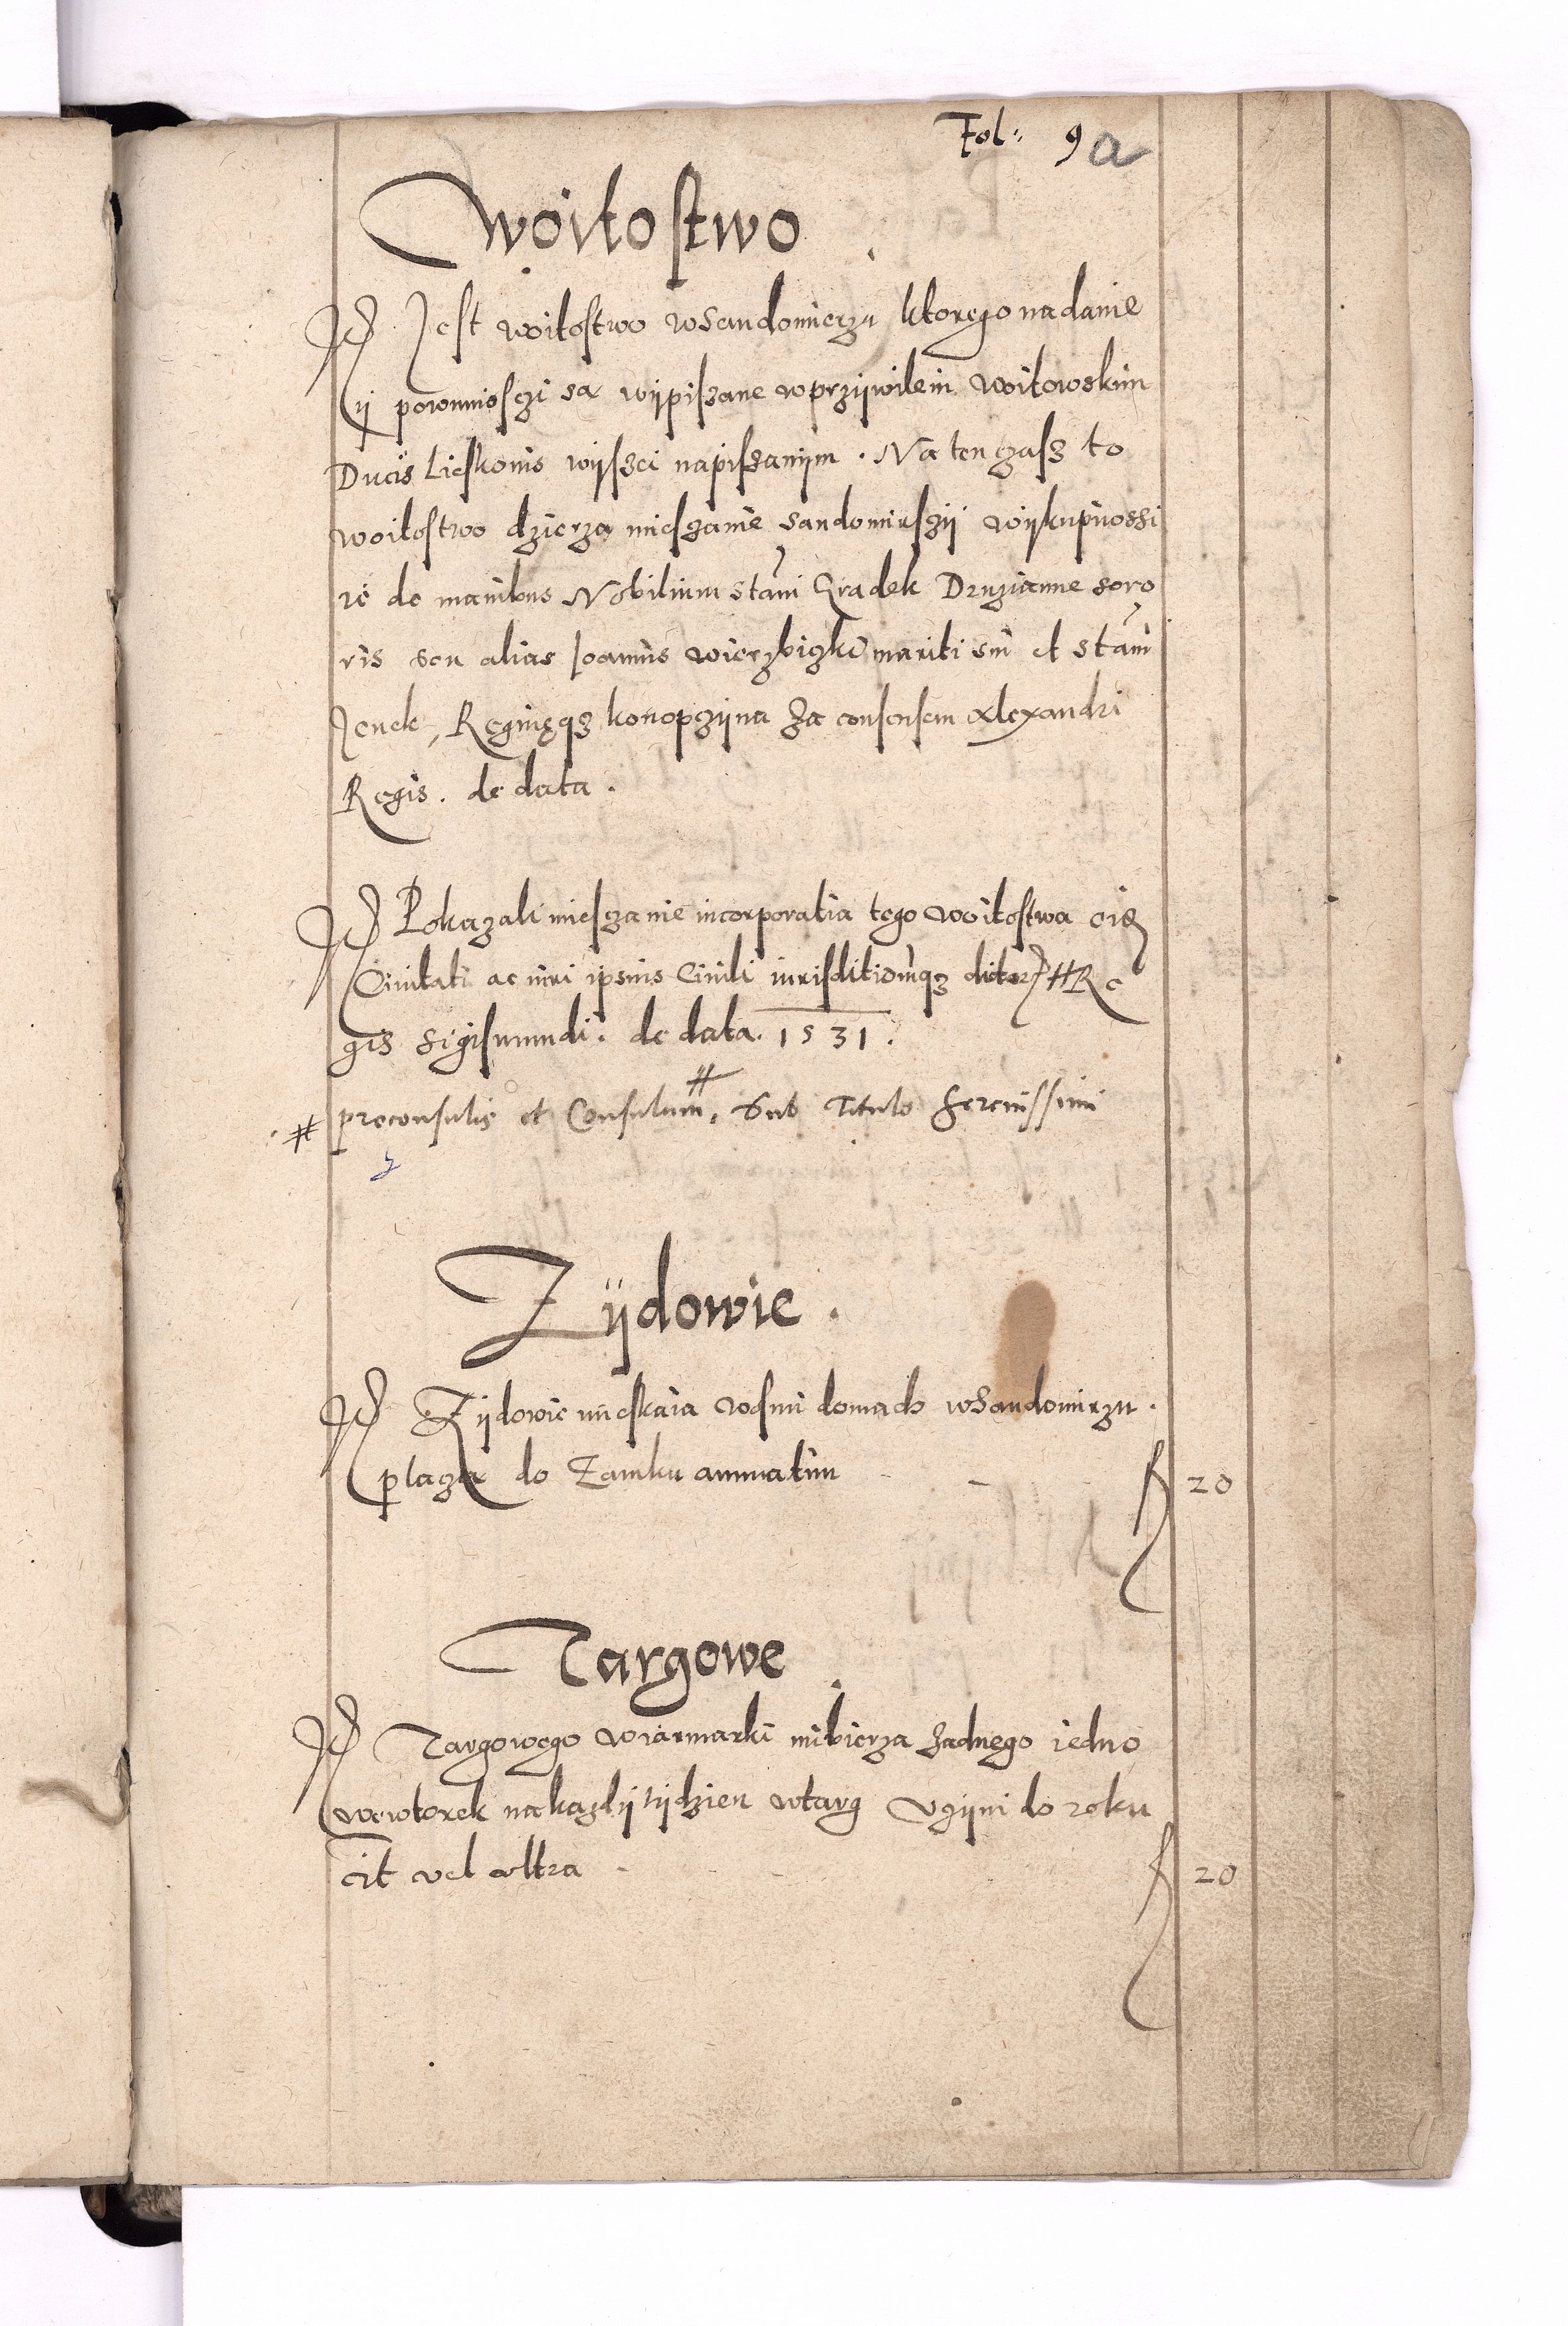 Fol: 9 a
Woitostwo
It Jest woitostwo wSandomierzu ktorego nadanie
ij powinnosczi sa wijpiszane wprzijwileiu woitowskim
Ducis Lieskonis wijszei napiszanijm. Na ten czasz to
woitostwo dzierza miesczanie Sandomirsczij wijkupiwssi
ie de manibus Nobilium Stani Gradek Druzianne soro
ris seu alias Joannis wierzbiczki mariti sui et Stani
Jenek, Reginęqz konopczijna za consensem Alexandri
Regis. de data.
It Pokazali miesczanie incorporatia tego woitostwa
Civitati ac iuri ipsius Civili iurisditioniqz dictor # Re
gis Sigismundi. de data. 1531.
# proconsulis et Consulum, # Sub Titulo Serenissimi
Zijdowie.
It Zijdowie mieskaia wosmi domach wSandomirzu.
placza do Zamku annuatim - - f 20
Targowe
It Targowego wiarmarki nibierza zadnego iedno
wewtorek nakazdij tijdzien wtarg Vczijni do roku
cit vel ultra - - - f 20